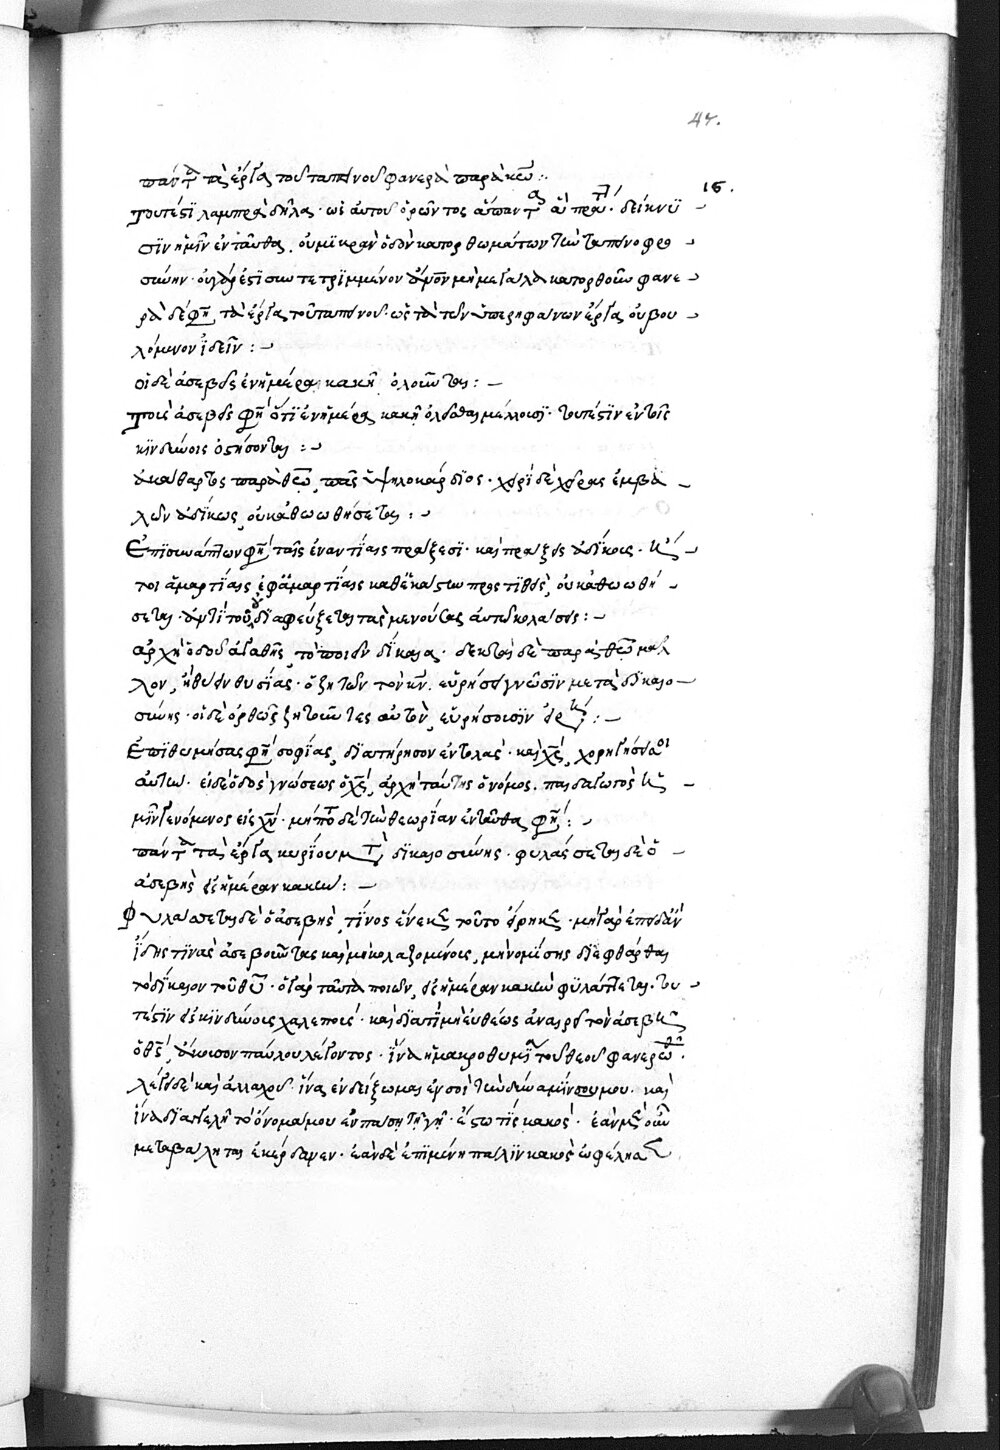 47.
15.
πάντα τὰ ἔργα τοῦ ταπεινοῦ φανερὰ παρὰ κῶ :.
Τουτέστι λαμπρὰ δῆλα · ὡς αὐτοῦ ὁρῶντος ἅπαντα ἃ πράττει · δείκνυ
σιν ἡμῖν ἐνταῦθα, οὐ μικρὰν ὁδὸν κατορθωμάτων τὴν ταπεινοφρο
σύνην · οὐ γάρ ἐστι συντετριμμένον μὴ μεγάλα κατορθοῦν φανε
ρὰ δέ φησι τὰ ἔργα τοῦ ταπεινοῦ · ὡς τὰ τῶν ὑπερηφάνων ἔργα οὐ βου
λόμενον ἰδεῖν : -
οἱ δὲ ἀσεβεῖς ἐν ἡμέρα κακῆ ὀλοῦνται : -
Τοὺς ἀσεβεῖς φησὶ ὅτι ἐν ἡμέρα κακῆ ὀλεῖσθαι μέλλουσι · τουτέστιν ἐν τοῖς
κινδύνοις :-
ἀκάθαρτος παρὰ θεῶ, πᾶς ὑψηλοκάρδιος · χειρὶ δὲ χεῖρας ἐμβα
λὼν ἀδίκως, οὐκ ἀθωωθήσεται : -
Ἐπισυνάπτων φησὶ ταῖς ἐναντίαις πράξεσι · καὶ πράξεις ἀδίκοις · καί
τοι ἁμαρτίαις ἐφ' ἁμαρτίαις καθ' ἑκάστην προστιθείς, οὐκ ἀθωωθή
σεται · ἀντὶ τοῦ, οὐ διαφεύξεται τὰς μενούσας αὐτῶ κολάσεις : -
ἀρχὴ ὁδοῦ ἀγαθῆς, τὸ ποιεῖν δίκαια · δεκτὰ δὲ παρὰ θεῶ μαλ
λον, ἢ θύειν θυσίας · ὁ ζητῶν τὸν κν, εὑρήσει γνῶσιν μετὰ δικαιο
σύνης · οἱ δὲ ὀρθῶς ζητοῦντες αὐτὸν, εὑρήσουσιν :-
Ἐπιθυμήσας φησὶ σοφίας, διατήρησον ἐντολάς · καὶ κς, χορηγήσει σοι
αὐτήν · εἰ δὲ ὁδὸς γνώσεως ὁ χς, ἀρχὴ ταύτης ὁ νόμος · παιδαγωγὸς ἡ
μῖν γενόμενος εἰς χν · μήποτε δὲ τὴν θεωρίαν ἐνταῦθα φησί : -
πάντα τὰ ἔργα κυρίου μετὰ δικαιοσύνης · φυλάσσεται δὲ ὁ
ἀσεβὴς εἰς ἡμέραν κακήν : -
Φυλάσσεται δὲ ὁ ἀσεβὴς, τίνος ἕνεκεν τοῦτο εἴρηκεν · μὴ γὰρ ἐπειδὰν
ἴδης τινὰς ἀσεβοῦντας καὶ μὴ κολαζομένους, μὴ νομίσης διεφθάρθαι
τὸ δίκαιον τοῦ θῦ · ὁ γὰρ ταῦτα ποιῶν, εἰς ἡμέραν κακὴν φυλάττεται · του
τέστιν εἰς κινδύνους χαλεπούς · καὶ διατί μὴ εὐθέως ἀναιρεῖ τὸν ἀσεβῆ
ὁ θς, ἄκουσον παύλου λέγοντος · ἵνα ἡ μακροθυμία τοῦ θεοῦ φανερωθῆ ·
λέγει δὲ καὶ ἀλλαχοῦ · ἵνα ἐνδείξωμαι ἐν σοὶ τὴν δύναμίν μου · καὶ
ἵνα διαγγελῆ τὸ ὄνομά μου ἐν πάση τῆ γῆ · ἔστω τίς κακός · ἐὰν μὲν οὖν
μεταβάληται ἐκέρδανεν · ἐὰν δὲ ἐπιμένη πάλιν κακὸς ὠφέλησε